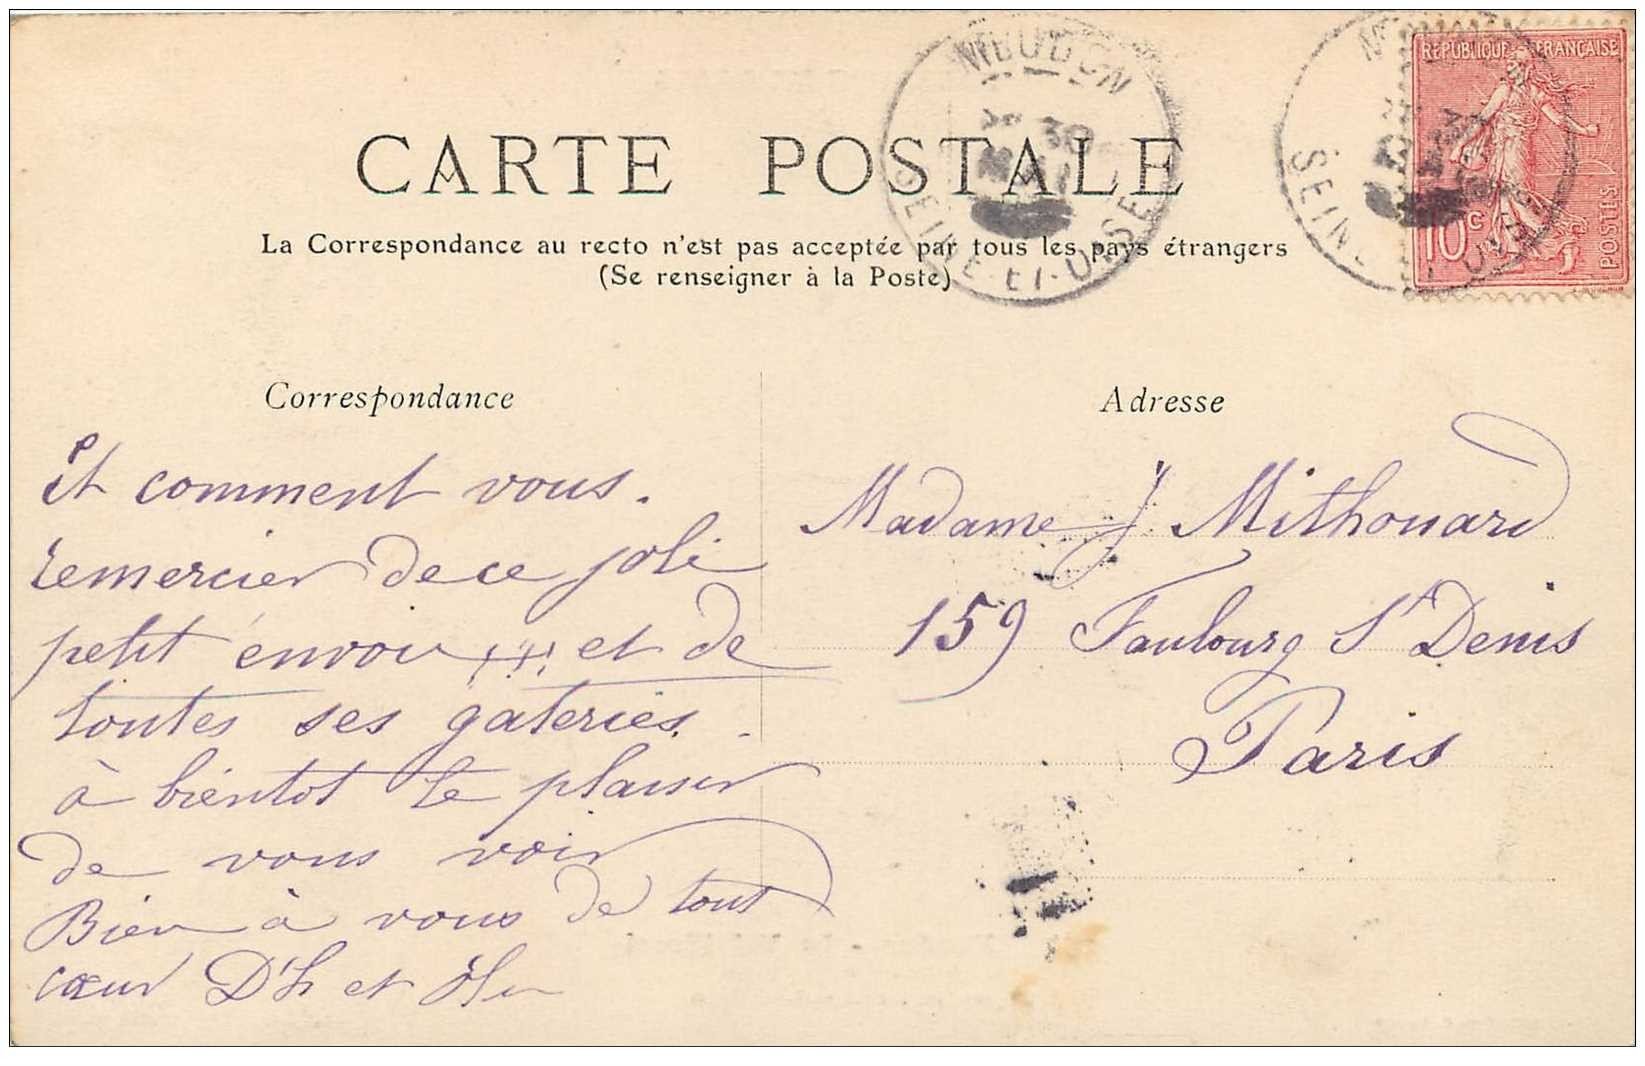 CARTE POSTALE
La Correspondance au recto n'est pas acceptée par tous les pays étrangers
(Se renseigner à la Poste)
MEUDON
30
SEINE-ET-OISE
REPUBLIQUE FRANÇAISE
10 c
POSTES
Correspondance
Et comment vous.
remercier de ce joli
petit envoi et de
toutes ses gateries.
à bientot le plaisir
de vous voir
Bien à vous de tout
cœur D'h et
Adresse
Madame J Mithouard
159 Faubourg St Denis
Paris